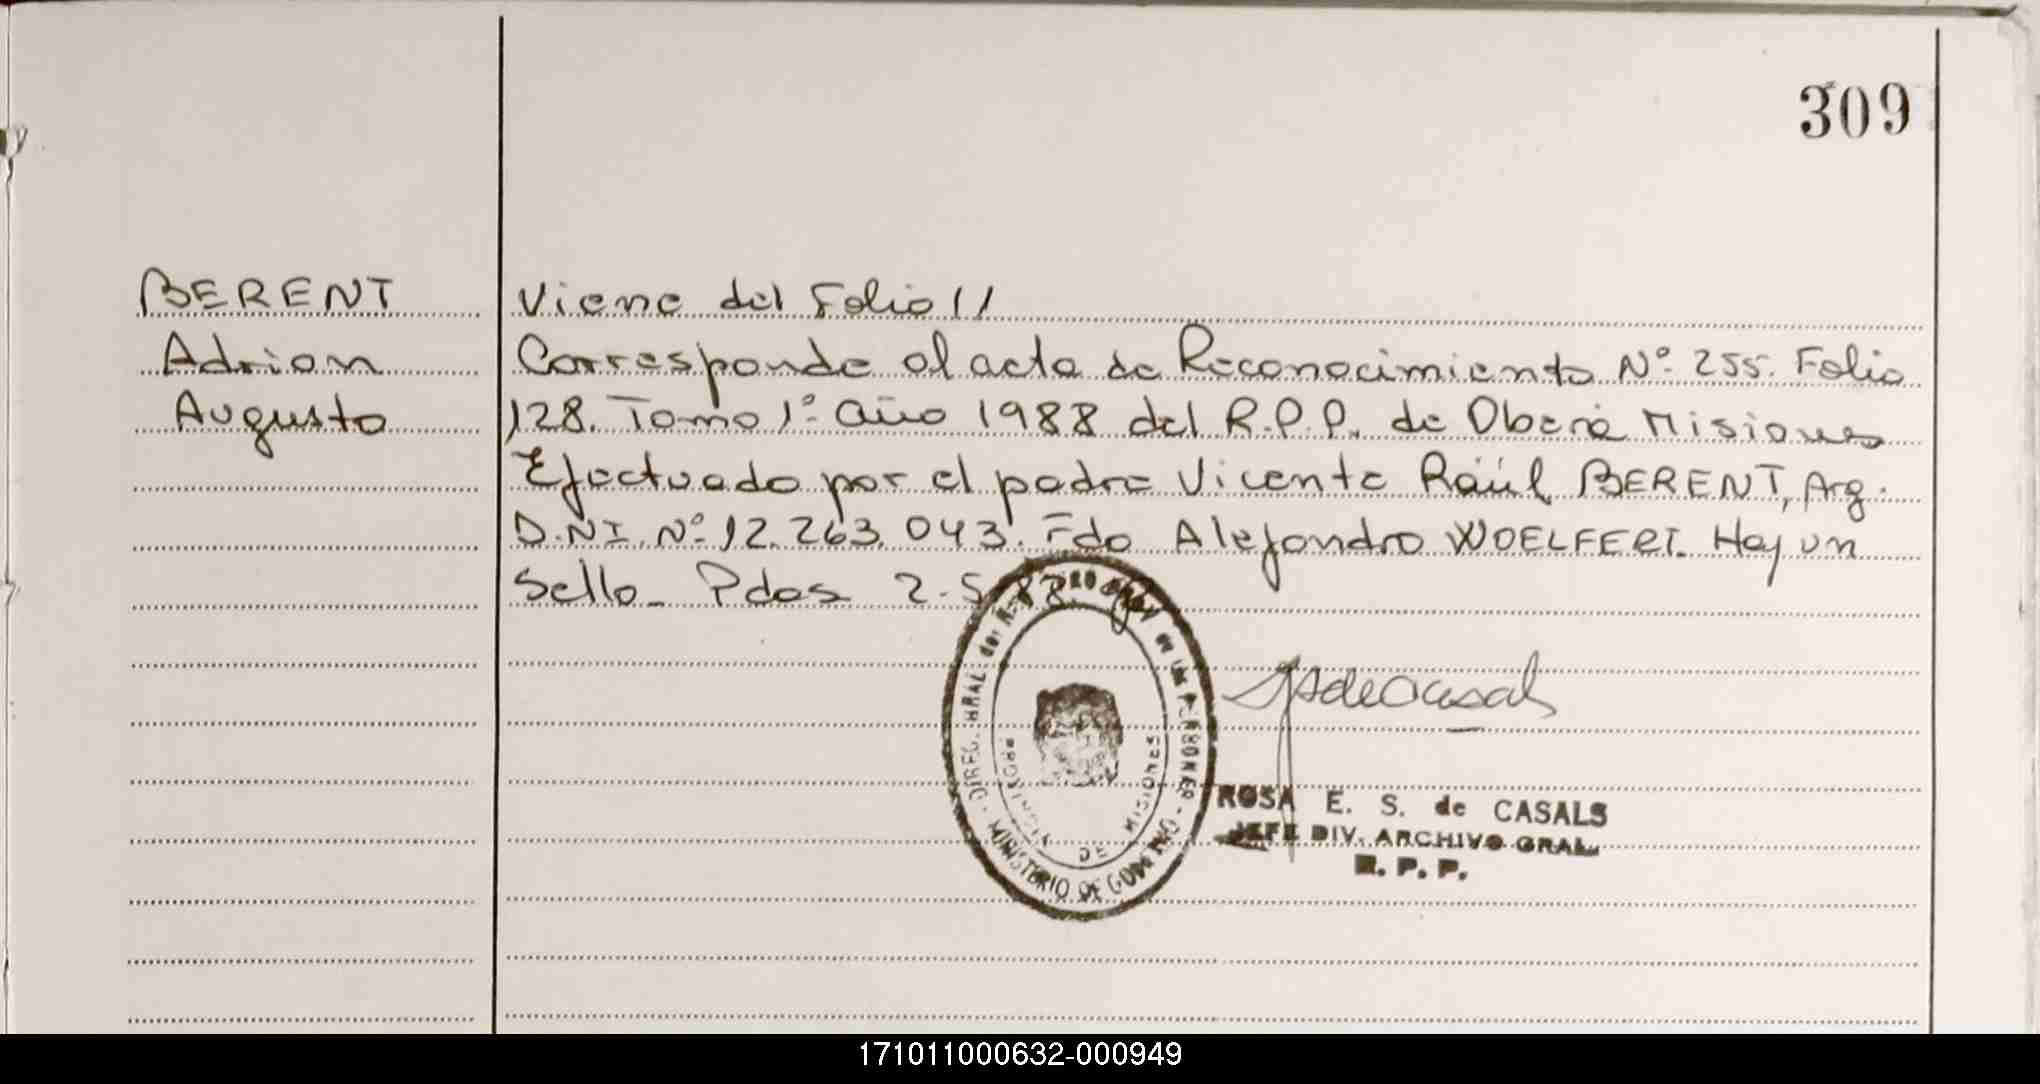 309
BERENT
Adrian
Augusto
Viene del Folio 11
Corresponde al acta de Reconocimiento Nº 255. Folio
128. Tomo 1º año 1988 del R.P.P. de Oberá Misiones
Efectuado por el padre Vicente Raúl BERENT, Arg.
D.N.I. Nº 12.263.043. Fdo Alejandro WOELFERT. Hay un
Sello_ Pdas 2-5-88
DIREC. GRAL del REGISTRO PROV. de las PERSONAS
PROVINCIA DE MISIONES
MINISTERIO DE GOBIERNO
ROSA E. S. de CASALS
JEFE DIV. ARCHIVO GRAL.
R. P. P.
171011000632-000949